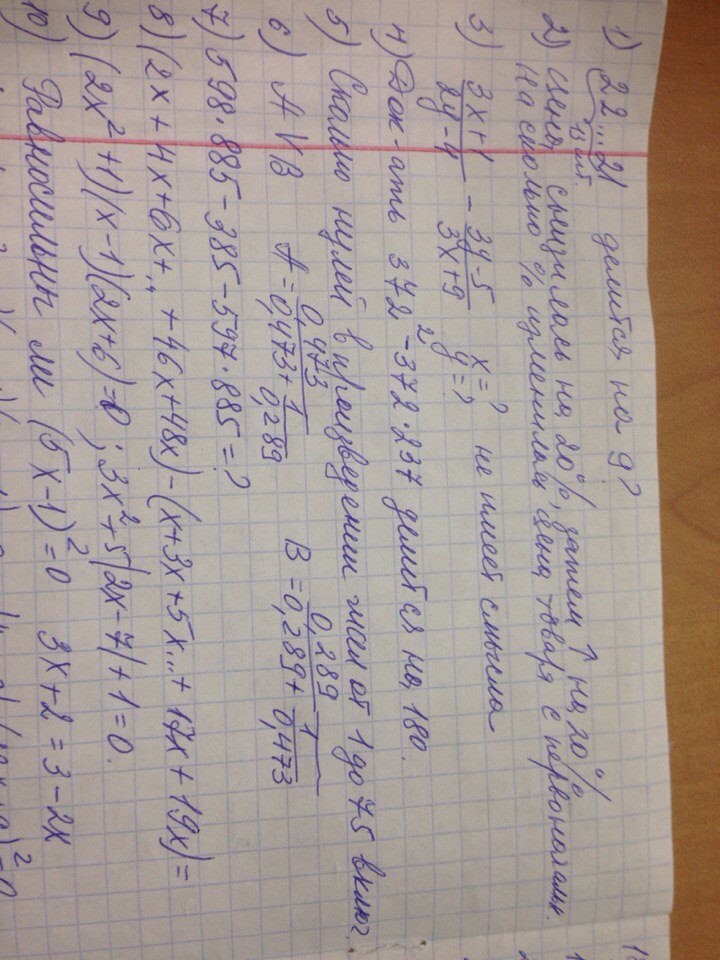 1) 22...21 делится на 9?
13 шт.
2) Цена снизилась на 20%, затем ↑ на 20%
На сколько % изменилась цена товара с первоначальн.
3) (3x+1)/(2y-4) - (3y-5)/(3x+9) x=? y=? не имеет смысла
4) Док-ать 372² - 372·237 делится на 180.
5) Сколько нулей в произведении чисел от 1 до 75 включ.
6) A V B A = 0,473/(0,473+1/0,289) B = 0,289/(0,289+1/0,473)
7) 598·885-385-597·885=?
8) (2x+4x+6x+...+46x+48x)-(x+3x+5x...+17x+19x)=
9) (2x²+1)(x-1)(2x+6)=0; 3x²+5|2x-7|+1=0.
10) Равносильны ли (5x-1)²=0 3x+2=3-2x